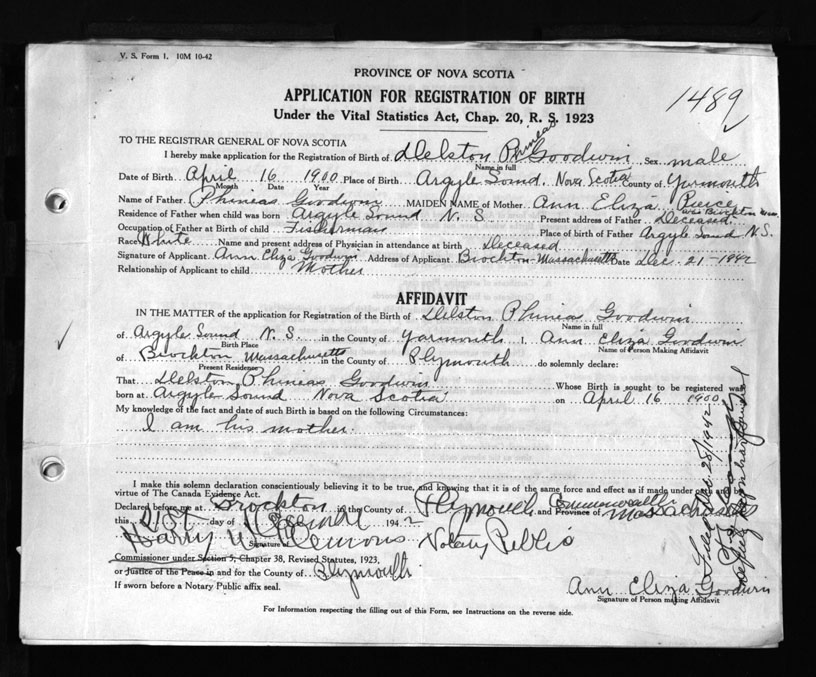 V. S. Form 1. 10M 10-42
PROVINCE OF NOVA SCOTIA
1489
APPLICATION FOR REGISTRATION OF BIRTH
Under the Vital Statistics Act, Chap. 20, R. S. 1923
TO THE REGISTRAR GENERAL OF NOVA SCOTIA
I hereby make application for the Registration of Birth of Delston Phineas Goodwin Sex male
Name in full
Date of Birth April 16 1900 Place of Birth Argyle Sound, Nova Scotia County of Yarmouth
Month Date Year
Name of Father Phineas Goodwin MAIDEN NAME of Mother Ann Eliza Pierce
Residence of Father when child was born Argyle Sound N. S. Present address of Father Deceased. was Brockton Mass.
Occupation of Father at Birth of child Fisherman Place of birth of Father Argyle Sound N.S.
Race White Name and present address of Physician in attendance at birth Deceased
Signature of Applicant Ann Eliza Goodwin Address of Applicant Brockton Massachusetts Date Dec. 21 - 1942
Relationship of Applicant to child Mother
AFFIDAVIT
IN THE MATTER of the application for Registration of the Birth of Delston Phineas Goodwin
Name in full
of Argyle Sound N. S. in the County of Yarmouth I, Ann Eliza Goodwin
Birth Place Name of Person Making Affidavit
of Brockton Massachusetts in the County of Plymouth do solemnly declare:
Present Residence
That Delston Phineas Goodwin Whose Birth is sought to be registered was
born at Argyle Sound Nova Scotia on April 16 1900
My knowledge of the fact and date of such Birth is based on the following Circumstances:
I am his mother.
I make this solemn declaration conscientiously believing it to be true, and knowing that it is of the same force and effect as if made under oath and by
virtue of The Canada Evidence Act.
Declared before me at Brockton in the County of Plymouth Commonwealth and Province of Massachusetts
this 21st day of December 1942
Harry W. Clemons Notary Public
Signature of
Commissioner under Section 5, Chapter 38, Revised Statutes, 1923,
or Justice of the Peace in and for the County of Plymouth
If sworn before a Notary Public affix seal.
Ann Eliza Goodwin
Signature of Person making Affidavit
For Information respecting the filling out of this Form, see Instructions on the reverse side.
Filed Dec 28/1942
Deputy Registrar General